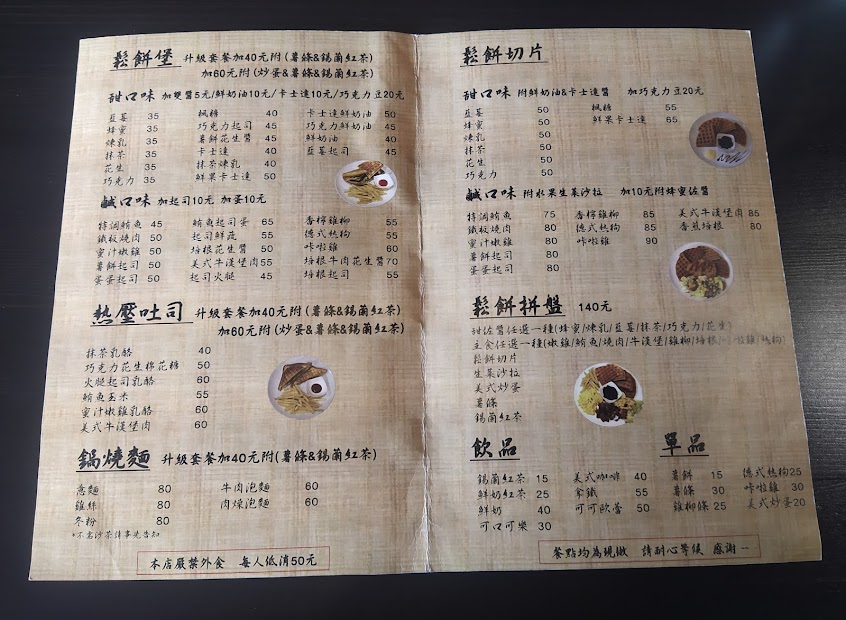 鬆餅堡 升級套餐加40元附(薯條&錫蘭紅茶)
加60元附(炒蛋&薯條&錫蘭紅茶)
甜口味 加雙醬5元/鮮奶油10元/卡士達10元/巧克力豆20元
藍莓 35 楓糖 40 卡士達鮮奶油 50
蜂蜜 35 巧克力起司 45 巧克力鮮奶油 45
煉乳 35 薯餅花生醬 45 鮮奶油 40
抹茶 35 卡士達 40 藍莓起司 45
花生 35 抹茶煉乳 40
巧克力 35 鮮果卡士達 50
鹹口味 加起司10元 加蛋10元
特調鮪魚 45 鮪魚起司蛋 65 香檸雞柳 55
鐵板燒肉 50 起司鮮蔬 55 德式熱狗 55
蜜汁嫩雞 50 培根花生醬 50 咔啦雞 60
薯餅起司 50 美式牛漢堡肉 55 培根牛肉花生醬 70
蛋蛋起司 50 起司火腿 45 培根起司 55
熱壓吐司 升級套餐加40元附(薯條&錫蘭紅茶)
加60元附(炒蛋&薯條&錫蘭紅茶)
抹茶乳酪 40
巧克力花生棉花糖 50
火腿起司乳酪 60
鮪魚玉米 55
蜜汁嫩雞乳酪 60
美式牛漢堡肉 60
鍋燒麵 升級套餐加40元附(薯條&錫蘭紅茶)
意麵 80 牛肉泡麵 60
雞絲 80 肉燥泡麵 60
冬粉 80
*不加沙茶請事先告知
本店嚴禁外食 每人低消50元
鬆餅切片
甜口味 附鮮奶油&卡士達醬 加巧克力豆20元
藍莓 50 楓糖 55
蜂蜜 50 鮮果卡士達 65
煉乳 50
抹茶 50
花生 50
巧克力 50
鹹口味 附水果生菜沙拉 加10元附蜂蜜佐醬
特調鮪魚 75 香檸雞柳 85 美式牛漢堡肉 85
鐵板燒肉 80 德式熱狗 85 香煎培根 80
蜜汁嫩雞 80 咔啦雞 90
薯餅起司 80
蛋蛋起司 80
鬆餅拼盤 140元
甜佐醬任選一種(蜂蜜/煉乳/藍莓/抹茶/巧克力/花生)
主食任選一種(嫩雞/鮪魚/燒肉/牛漢堡/雞柳/培根/咔啦雞/熱狗)
鬆餅切片
生菜沙拉
美式炒蛋
薯條
錫蘭紅茶
飲品
錫蘭紅茶 15 美式咖啡 40
鮮奶紅茶 25 拿鐵 55
鮮奶 40 可可歐蕾 50
可口可樂 30
單品
薯餅 15 德式熱狗 25
薯條 30 咔啦雞 30
雞柳條 25 美式炒蛋 20
餐點均為現做 請耐心等候 感謝~